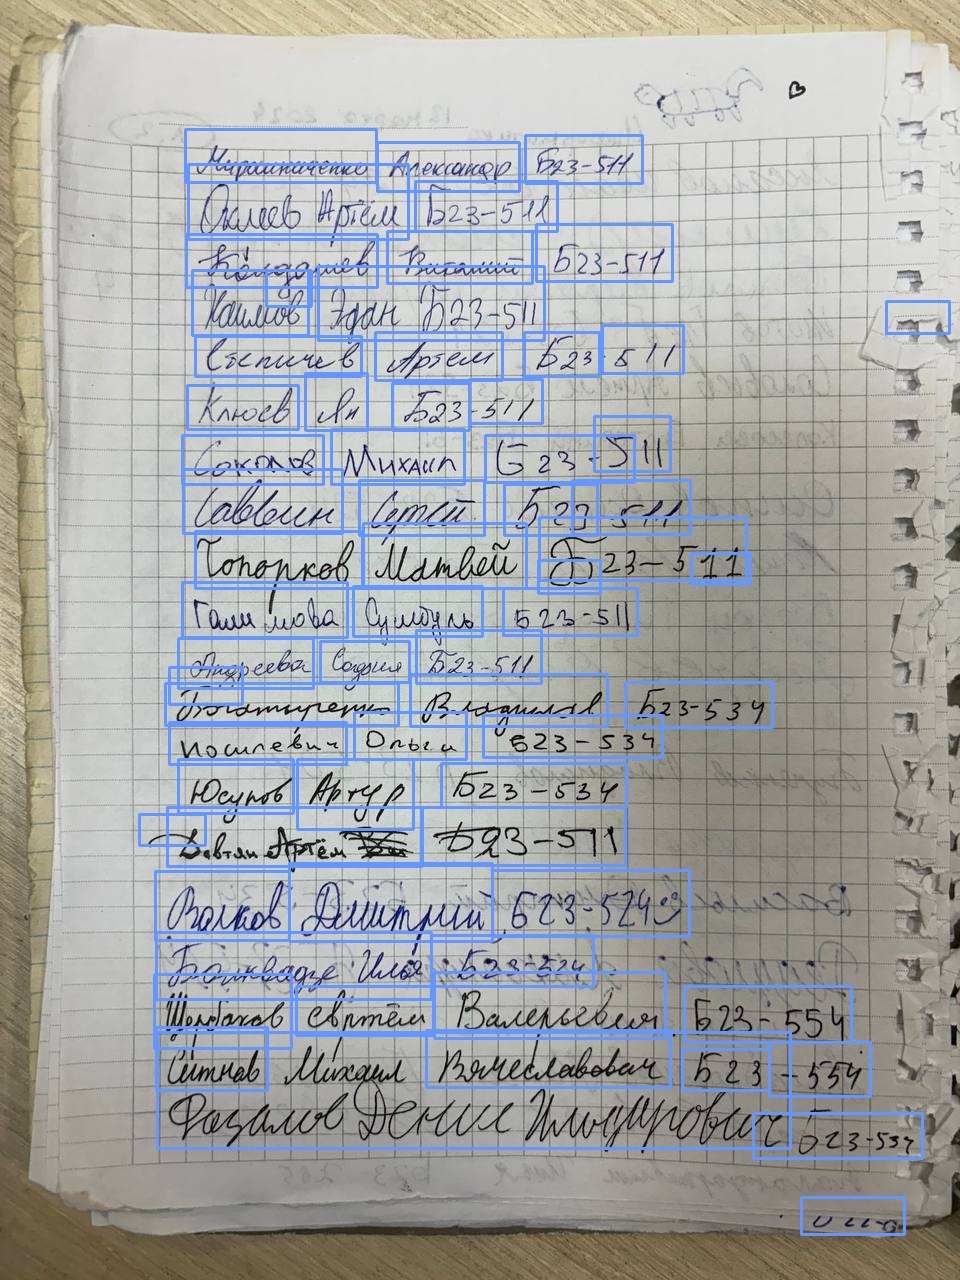 Мирошниченко Александр Б23-511
Оклеев Артём Б23-511
Кондрашев Виталий Б23-511
Наимов Эдан Б23-511
Степичев Артем Б23-511
Клюев Ян Б23-511
Соколов Михаил Б23-511
Саввин Сергей Б23-511
Топорков Матвей Б23-511
Галимова Сумбуль Б23-511
Андреева София Б23-511
Богатыренко Владислав Б23-534
Иосилевич Ольга Б23-534
Юсупов Артур Б23-534
Давтян Артём Б23-511
Волков Дмитрий Б23-524
Болквадзе Илья Б23-524
Щербаков Артём Валерьевич Б23-554
Ситнов Михаил Вячеславович Б23-554
Фазалов Денис Ильдирович Б23-534